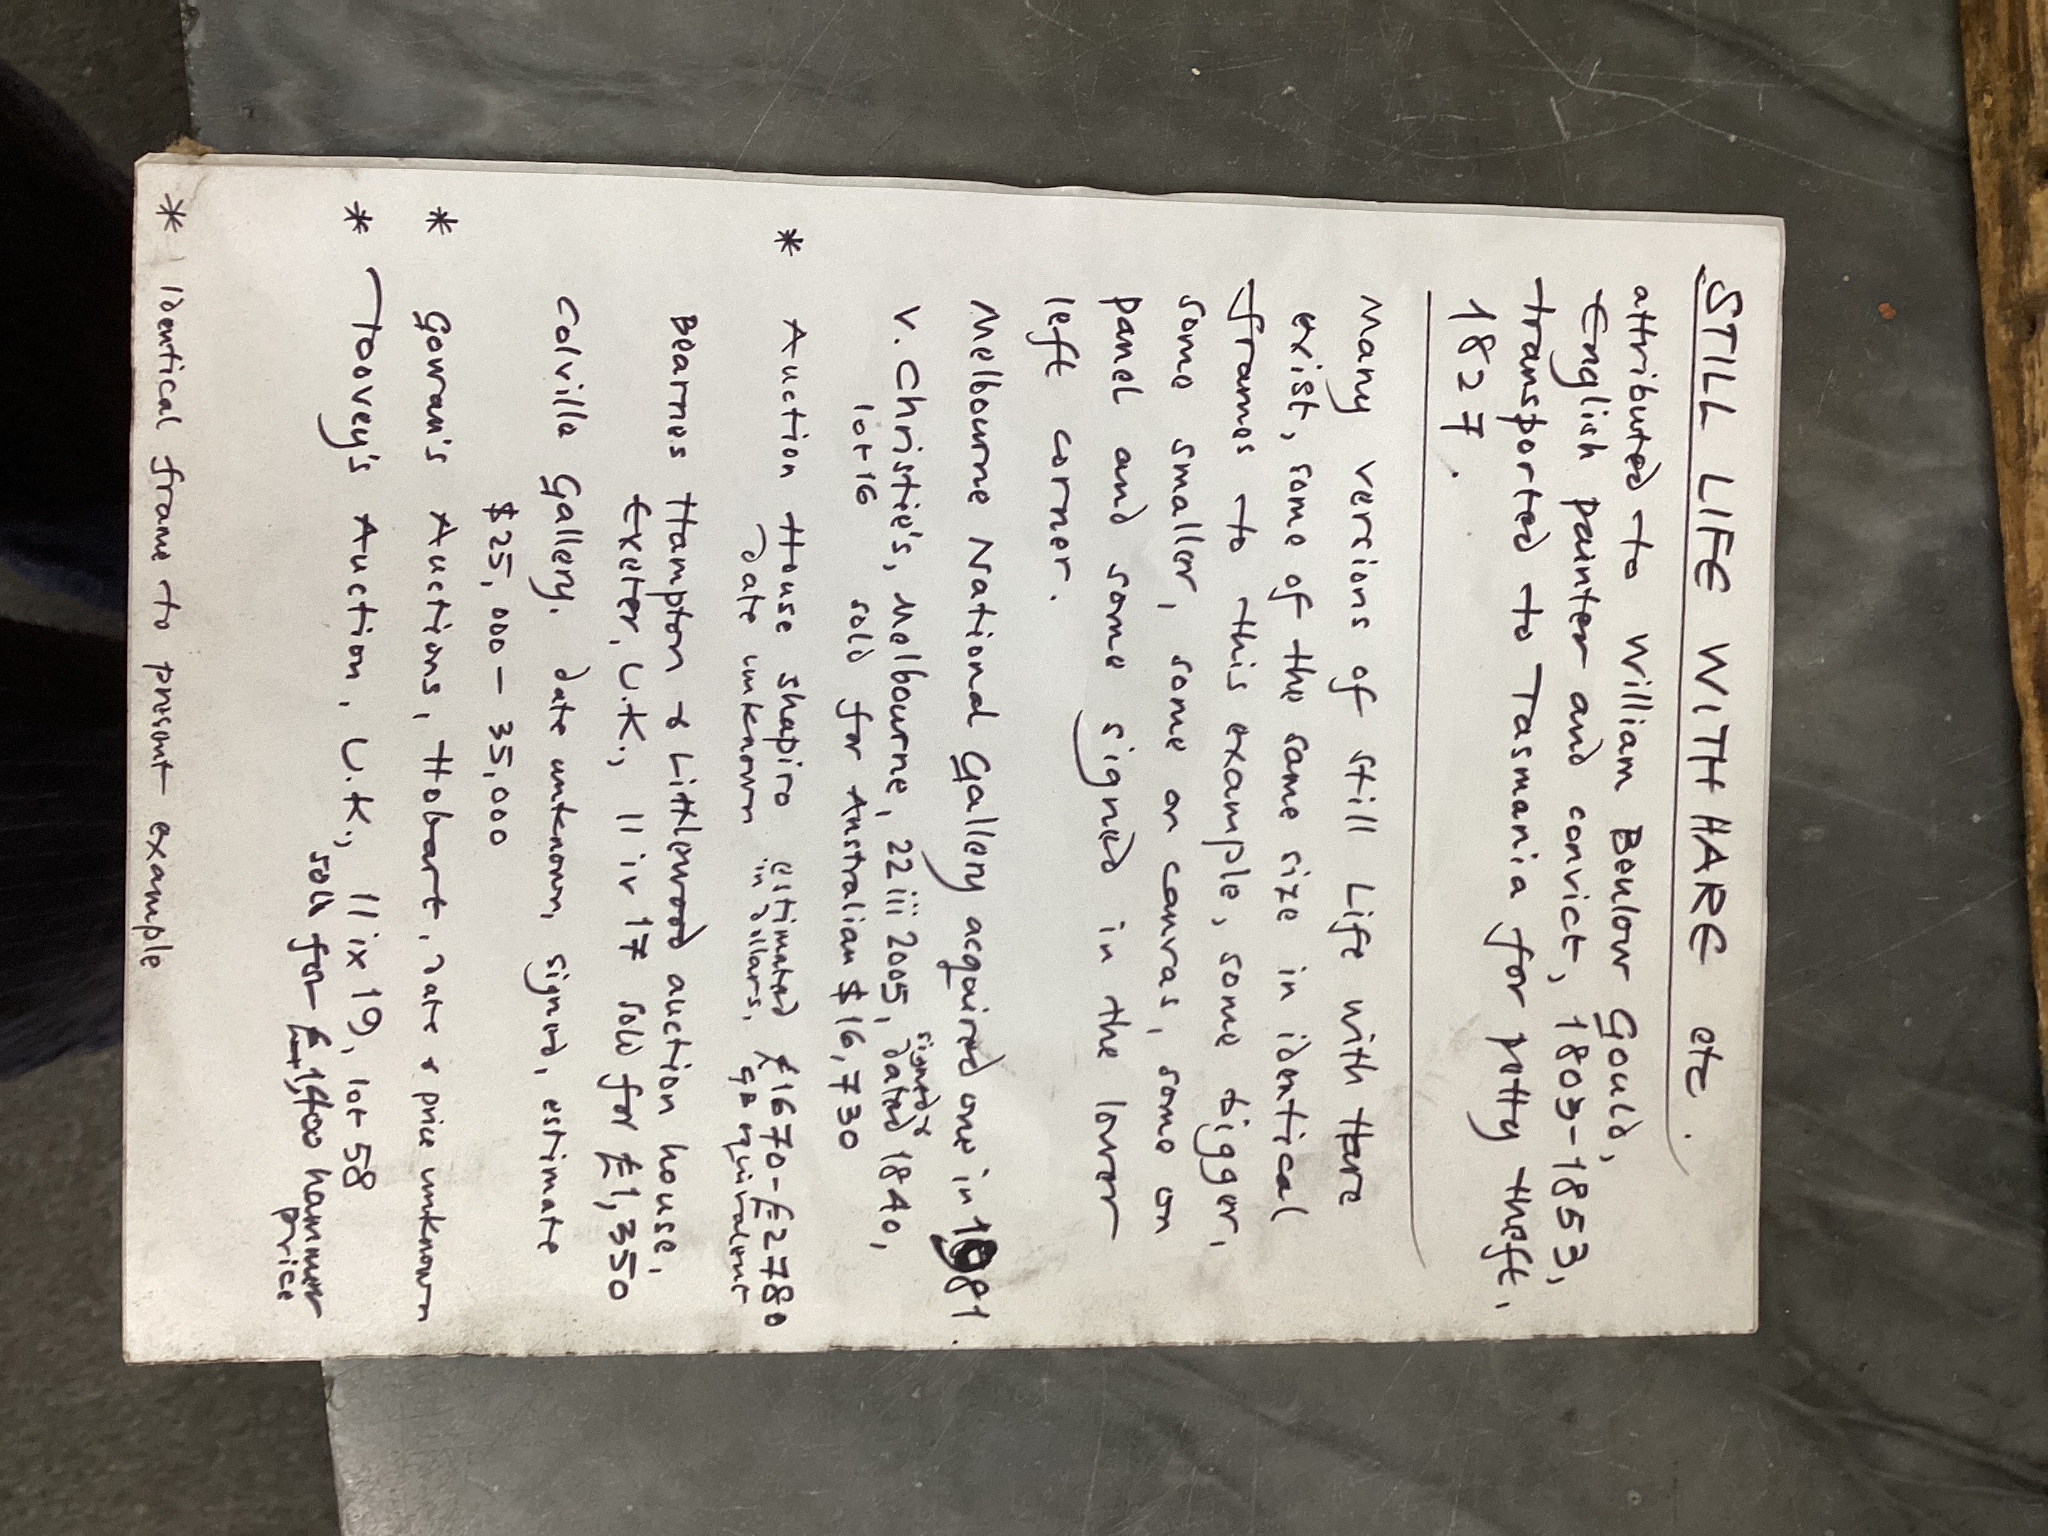 STILL LIFE WITH HARE etc.
attributed to William Beulow Gould,
English painter and convict, 1803-1853,
transported to Tasmania for petty theft,
1827.
Many versions of Still Life with Hare
exist, some of the same size in identical
frames to this example, some bigger,
some smaller, some on canvas, some on
panel and some signed in the lower
left corner.
Melbourne National Gallery acquired one in 1981.
V. Christie's, Melbourne, 22 iii 2005, signed & dated 1840,
lot 16 sold for Australian $16,730
* Auction House Shapiro estimated £1670-£2780
Date unknown in dillars, GB equivalent
Bearnes Hampton & Littlewood auction house,
Exeter, U.K., 11 iv 17 sold for £1,350
Colville Gallery. Date unknown, signed, estimate
$25,000 - 35,000
* Gowan's Auctions, Hobart, date & price unknown
* Toovey's Auction, U.K., 11 ix 19, lot 58
sold for £1,400 hammer
price
* Identical frame to present example